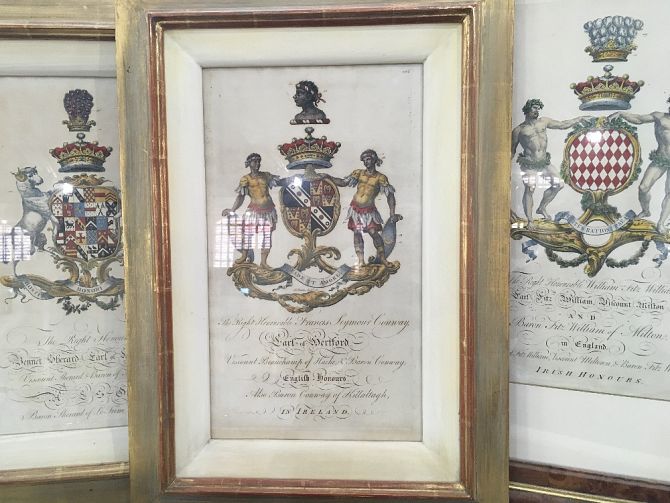 HOSTIS HONORI
The Right Honour
Bennet Sherard Earl of
Viscount Sherard & Baron of
Baron Sherard of Le
FIDE ET AMORE
The Right Honorable Francis Seymour Conway,
Earl of Hertford
Viscount Beauchamp of Hache & Baron Conway,
English Honours
Also Baron Conway of Killultagh,
IN IRELAND.
The Right Honorable William Fitz William
Earl Fitz William, Viscount Milton
AND
Baron Fitz William of Milton,
in England
Fitz William, Viscount Miltown & Baron Fitz W
IRISH HONOURS.